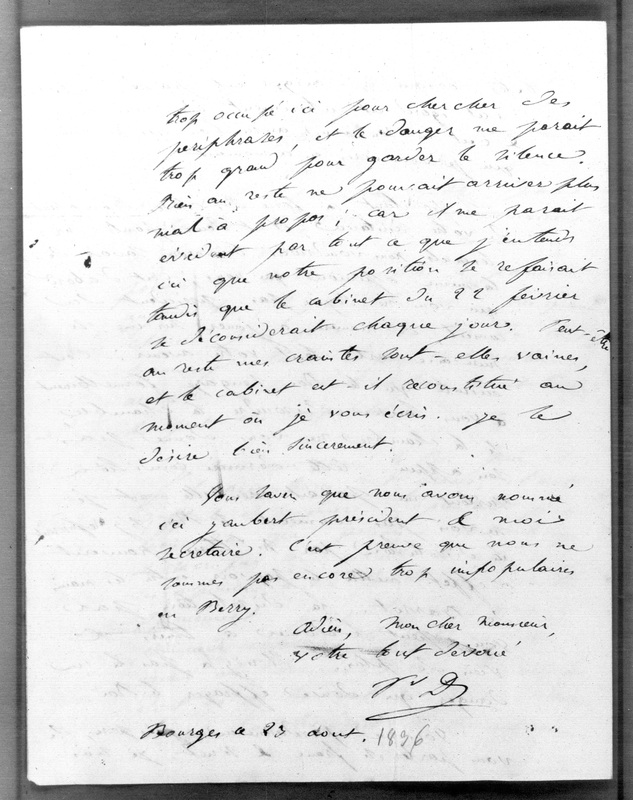 trop occupé ici pour chercher des
periphrases, et le danger me parait
trop grand pour garder le silence.
Rien au reste ne pouvait arriver plus
mal à propos; car il me parait
évident par tout ce que j'entends
ici que notre position se refaisait
tandis que le cabinet du 22 février
se déconsiderait chaque jour. Peut-être
au reste mes craintes sont-elles vaines,
et le cabinet est-il reconstitué au
moment où je vous écris. Je le
désire bien sincerement.
Vous savez que nous avons nommé
ici Jaubert président & moi
secretaire. C'est preuve que nous ne
sommes pas encore trop impopulaires
en Berry.
Adieu, mon cher Monsieur,
votre tout dévoué
Bourges ce 23 aout. 1836